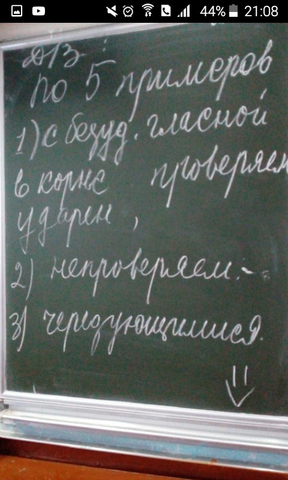 44% 21:08
ДЗ:
По 5 примеров
1) с безуд. гласной
в корне проверяем
ударен,
2) непроверяем. -
3) чередующимися.